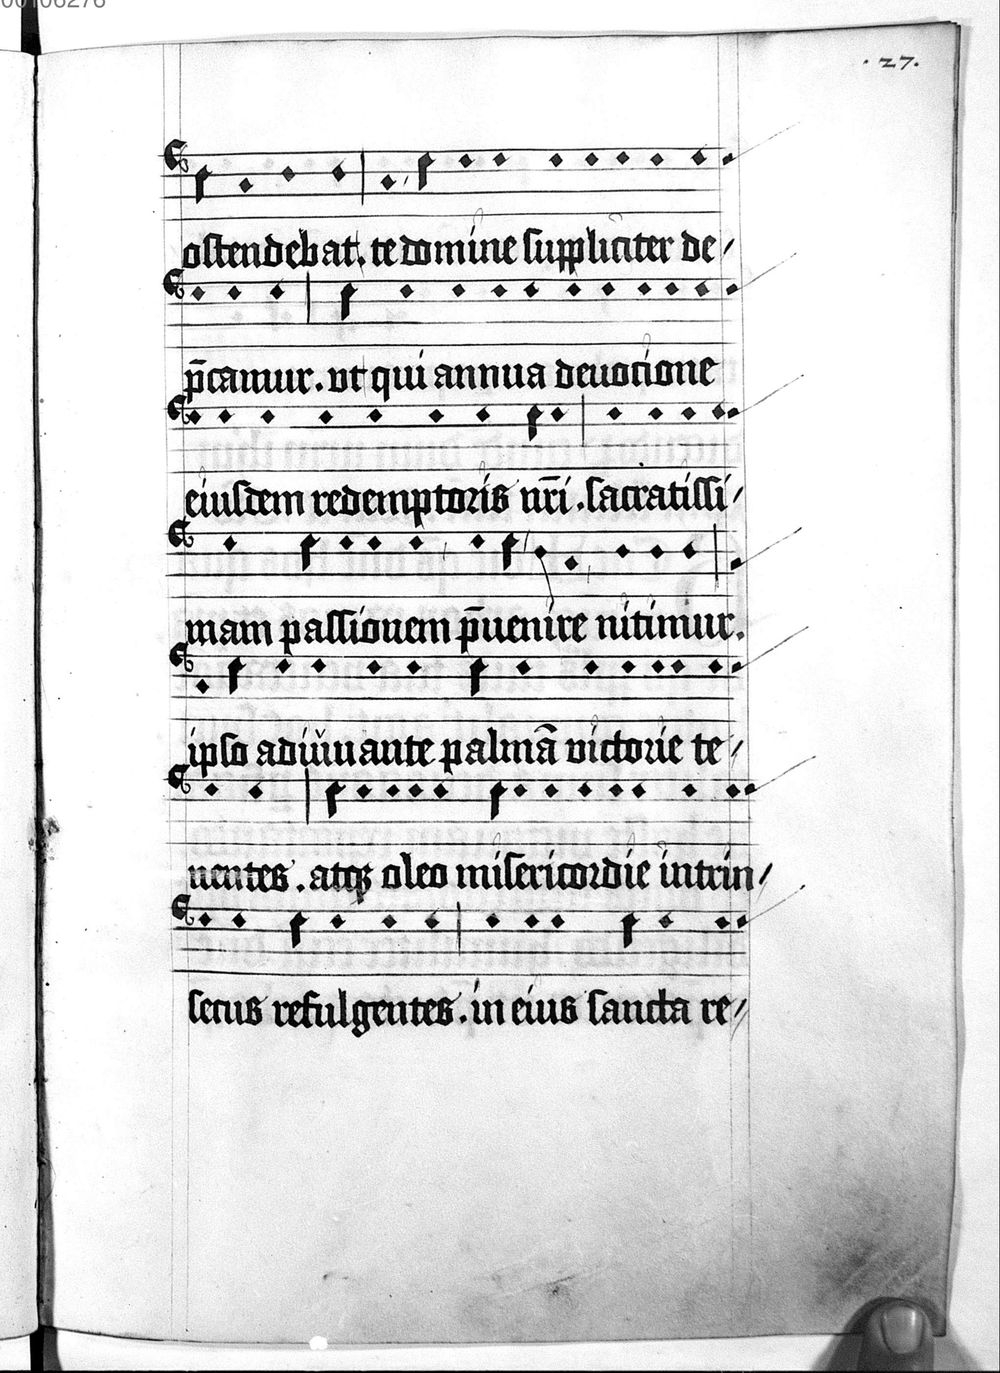 00106276
. 27.
ostendebat. te domine suppliciter de/
p̄camur. vt qui annua deuocione
eiusdem redemptoris nr̄i. sacratissi/
mam passionem p̄uenire nitimur.
ipso adiuuante palmā victorie te/
nentes. atqꝫ oleo misericordie intrin/
secus refulgentes. in eius sancta re/